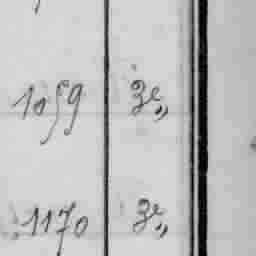 1059 3e„
1170 3e„